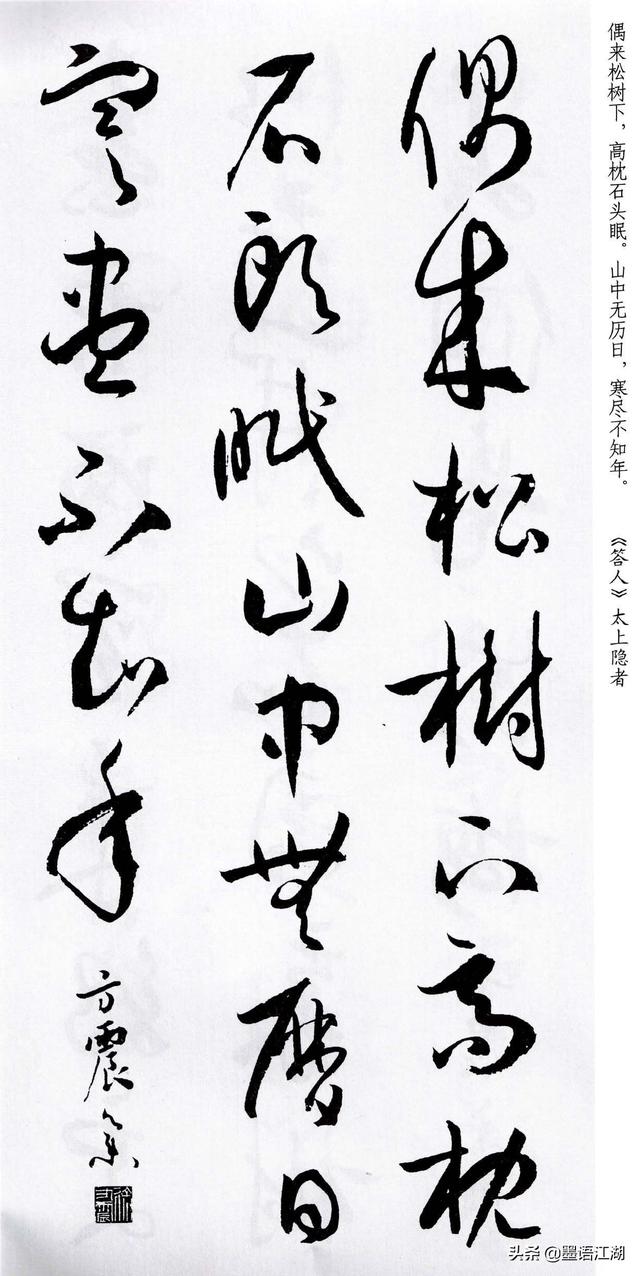 偶来松树下，高枕石头眠。山中无历日，寒尽不知年。 《答人》太上隐者
偶来松樹下高枕
石头眠山中無曆日
寒尽不知年
方震篆
头条 @墨语江湖